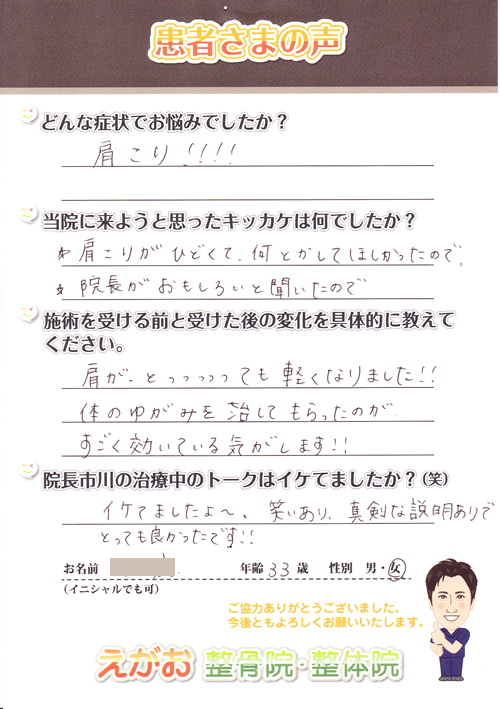 患者さまの声
どんな症状でお悩みでしたか？
肩こり!!!!
当院に来ようと思ったキッカケは何でしたか？
* 肩こりがひどくて、何とかしてほしかったので、
* 院長がおもしろいと聞いたので
施術を受ける前と受けた後の変化を具体的に教えて
ください。
肩が、とっっっっっても軽くなりました!!
体のゆがみを治してもらったのが、
すごく効いている気がします!!
院長市川の治療中のトークはイケてましたか？(笑)
イケてましたよ〜、笑いあり、真剣な説明ありで
とっても良かったです!!
お名前 年齢 33 歳 性別 男・女
(イニシャルでも可)
ご協力ありがとうございました。
今後ともよろしくお願いいたします。
えがお 整骨院・整体院